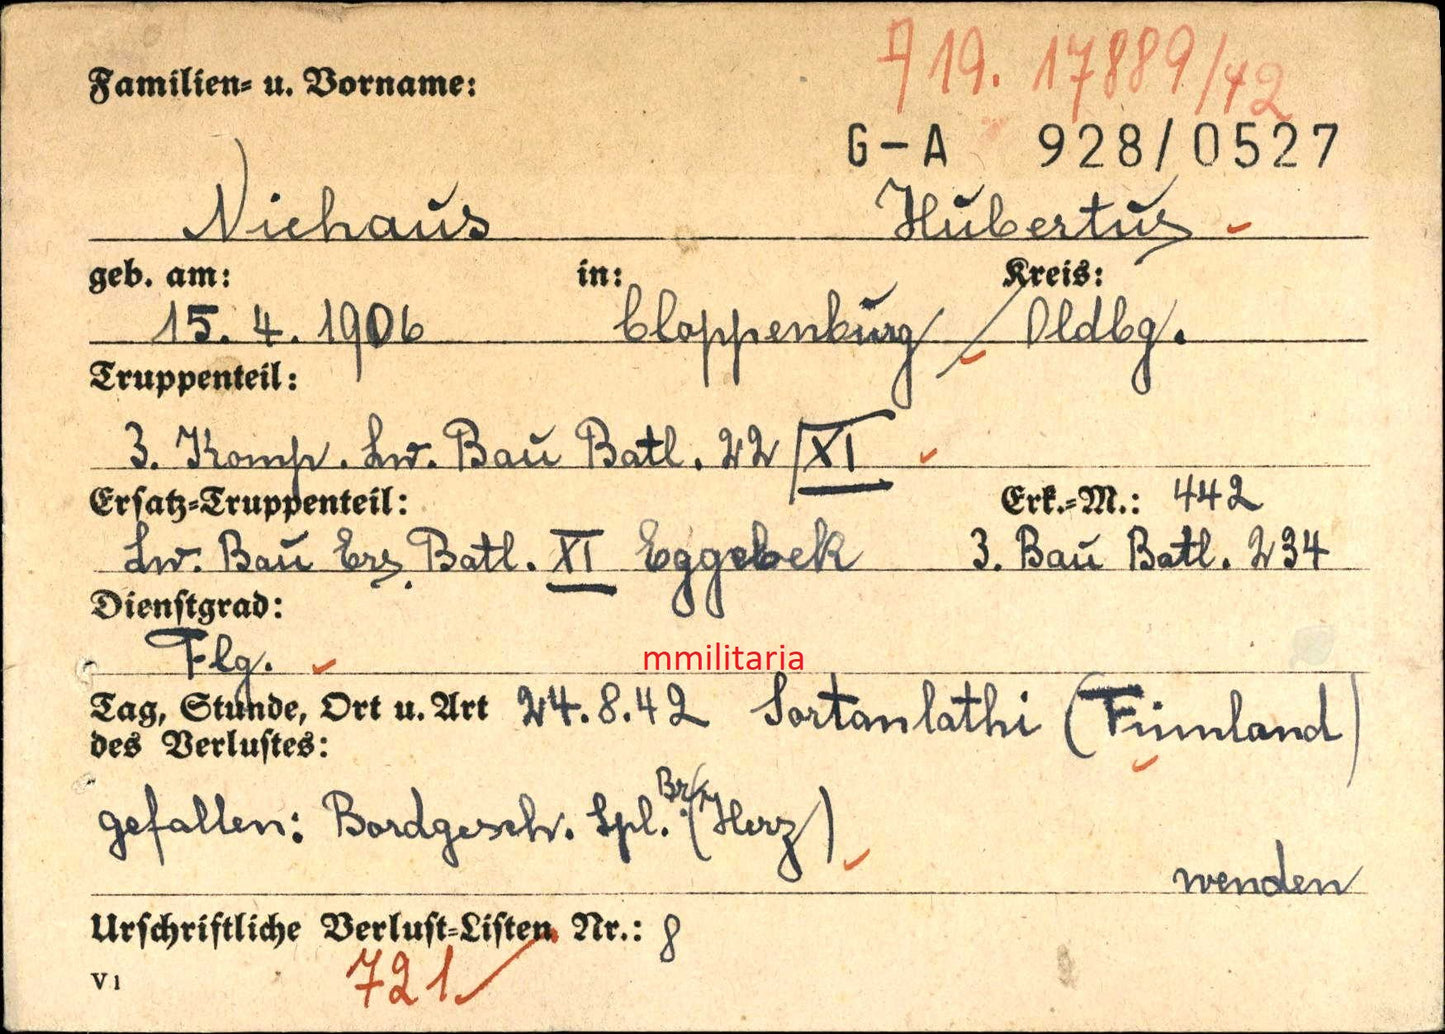 A 19. 17889/42
Familien- u. Vorname:
G-A 928/0527
Niehaus Hubertus
geb. am: in: Kreis:
15. 4. 1906 Cloppenburg / Oldbg.
Truppenteil:
3. Komp. Lw. Bau Batl. 22/XI
Ersatz-Truppenteil: Erk.-M.: 442
Lw. Bau Ers. Batl. XI Eggebek 3. Bau Batl. 234
Dienstgrad:
Flg.
mmilitaria
Tag, Stunde, Ort u. Art 24.8.42 Sortanlathi (Finnland)
des Verlustes:
gefallen: Bordgesch. Spl. Br. (Herz)
wenden
Urschriftliche Verlust-Listen Nr.: 8
V 1 721